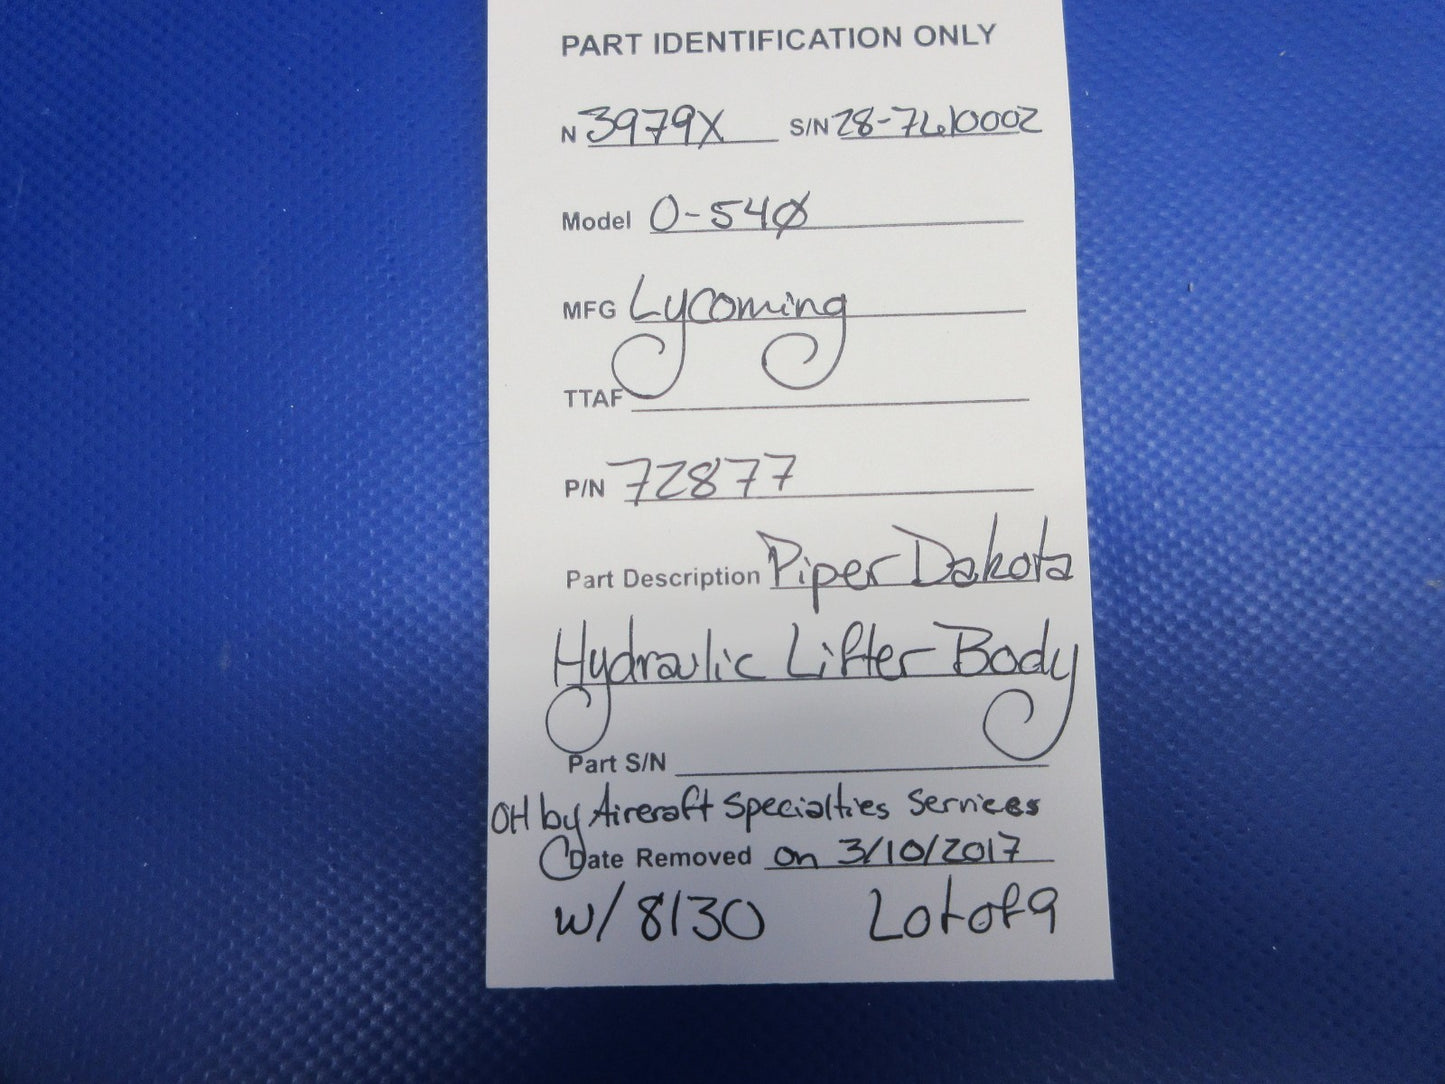 PART IDENTIFICATION ONLY
N 3979X S/N 28-7610002
Model O-540
MFG Lycoming
TTAF
P/N 72877
Part Description Piper Dakota
Hydraulic Lifter Body
Part S/N
OH by Aircraft Specialties Services
Date Removed on 3/10/2017
w/ 8130 Lot of 9